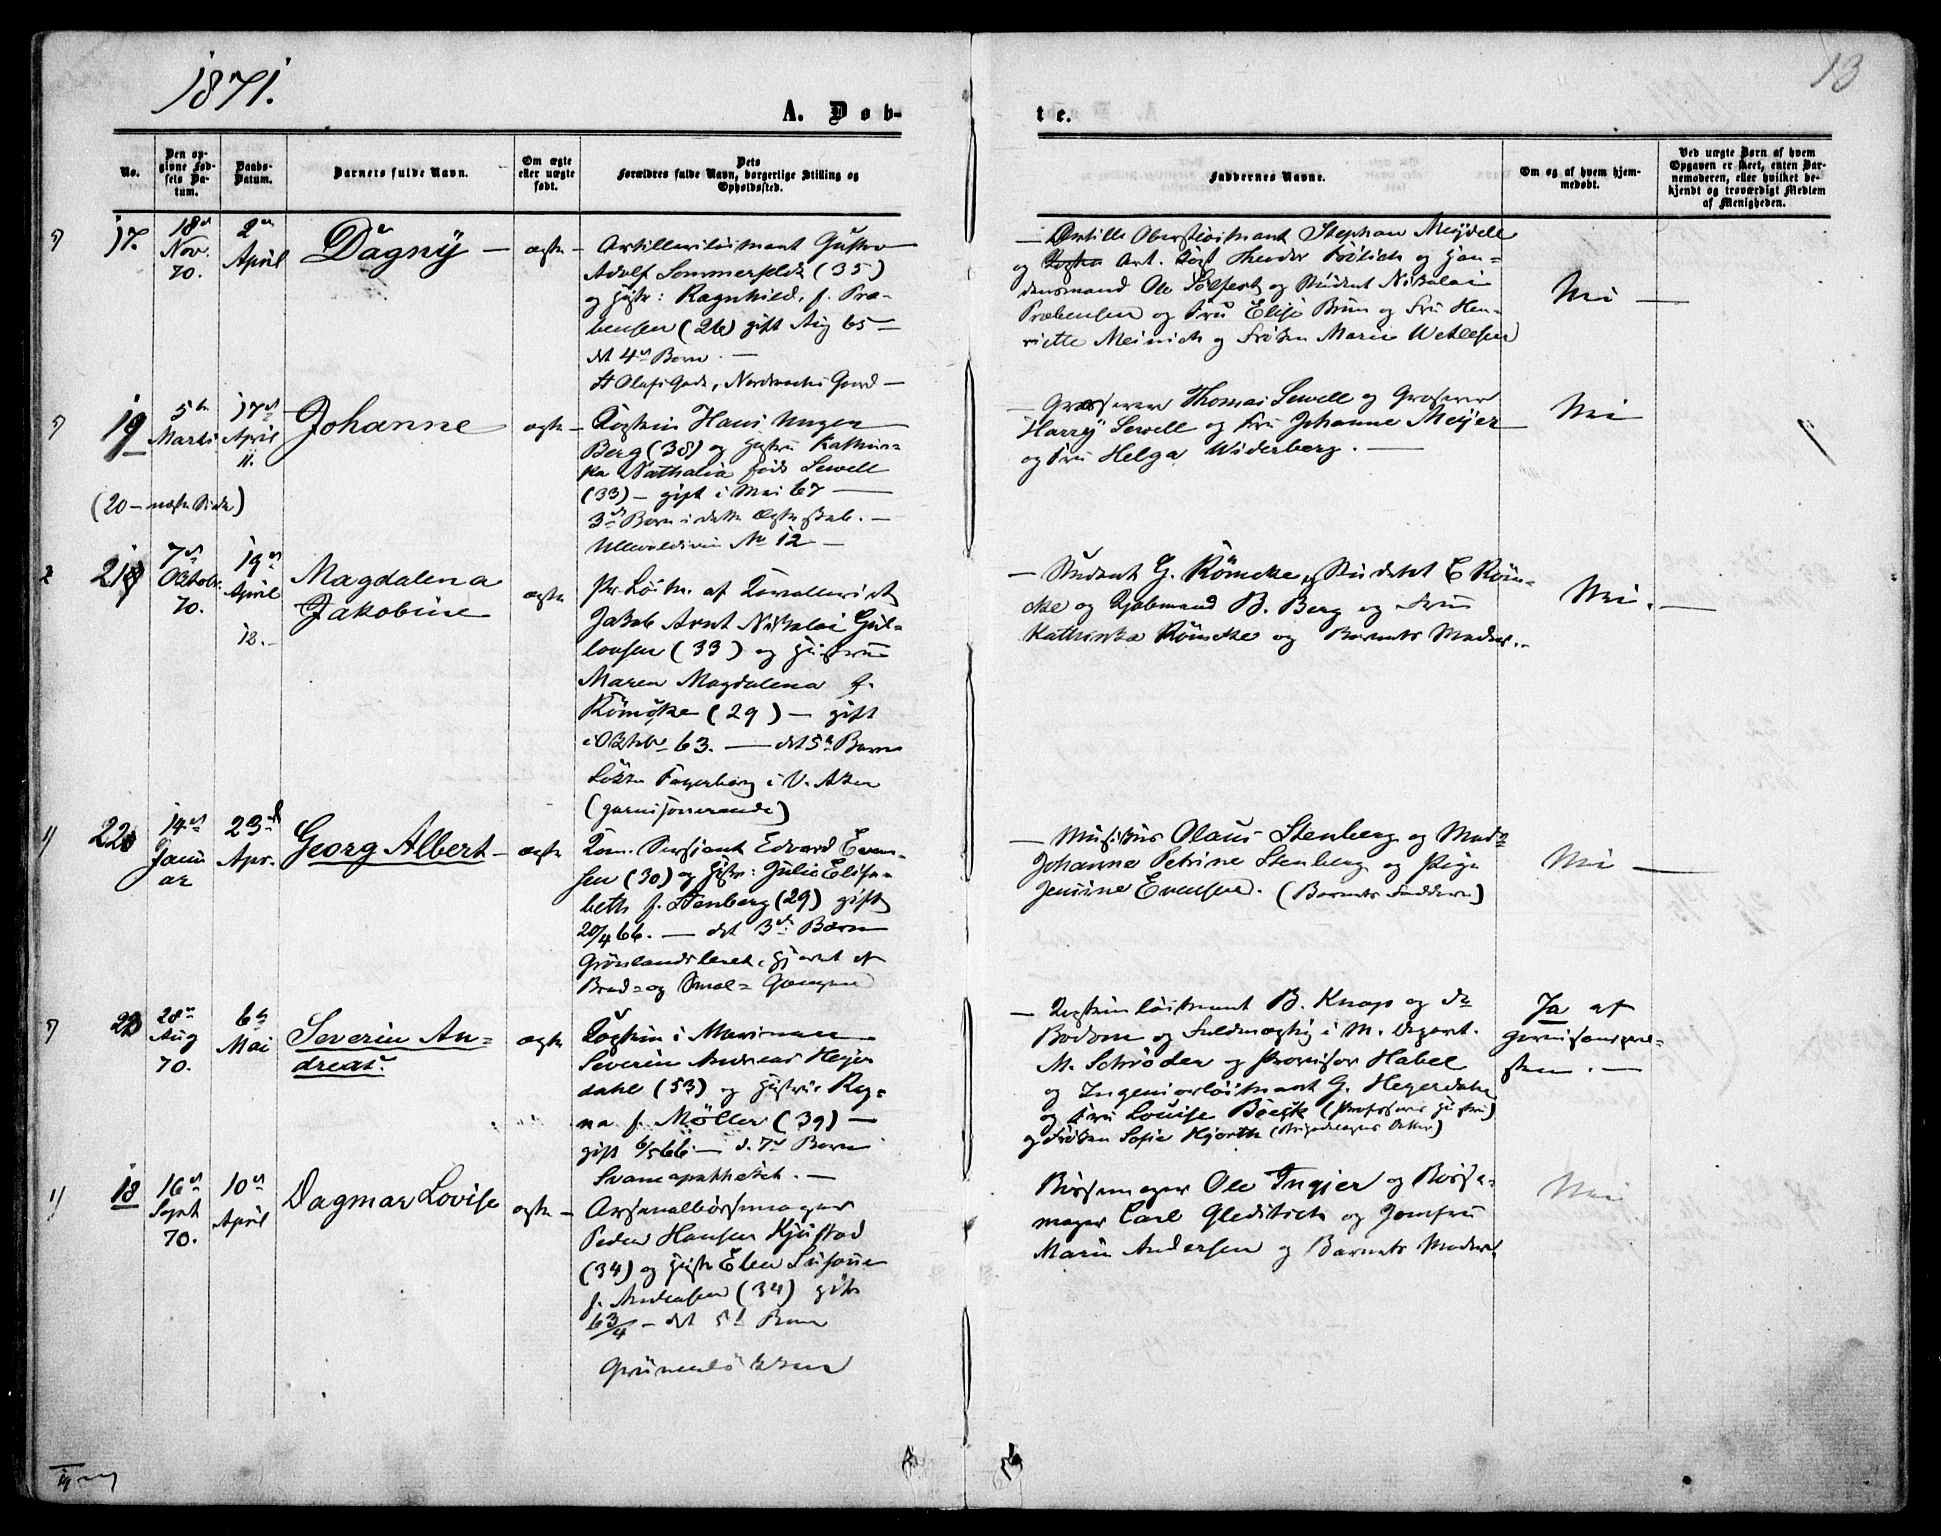 1871.
13
A. Døb-
te.
No.
Den op-
givne Fød-
sels Da-
tum.
Daabs-
Datum.
Barnets fulde Navn.
Om ægte
eller uægte
født.
Dets
Forældres fulde Navn, borgerlige Stilling og
Opholdssted.
Faddernes Navne.
Om og af hvem hjem-
medøbt.
Ved uægte Børn af hvem
Opgaven er skeet, enten Bar-
nemoderen, eller hvilket be-
kjendt og troværdigt Medlem
af Menigheden.
17.
18de
Nov.
70.
2den
April
Dagny —
ægte —
Artillerilöitnant Gustav
Adolf Sommerfeldt (35)
og Hustr: Ragnhild, f. Præ-
bensen (26) gift Aug 65 —
det 4de Barn. —
St Olafs Gade, Gaard —
— Oberstlöitnant Stephan Meydell
og Art. Theodor Frölich og Han-
delsmand Ole og Student Nikolai
Præbensen og Fru Elise Brun og Fru Hen-
riette Meinich og Fröken Marie Wetlesen
Nei —
19
5te
Marts
17de
April
11.
Johanne
ægte —
Kaptein Hans Unger
Berg (38) og Hustru Kathin-
ka Nathalia föds Sewell
(33) — gift i Mai 67 —
3de Barn i dette Ægteskab. —
Ullevoldsvei No 12 —
— Grosserer Thomas Sewell og Grosserer
Harry Sewell og Fru Johanne Meyer
og Fru Helga Widerberg. —
Nei
(20 — næste Side)
21
7de
Oktob.
70.
19de
April
12. —
Magdalena
Jakobine
ægte
Pr. Löitn. af Kavalleriet
Jakob Arnt Nikolai Gul-
lousen (33) og Hustru
Maren Magdalena f.
Römcke (29) — gift
i Oktob 63. — det 5te Barn
Lökken Fagerborg i V. Aker
(garnisonerende)
— Student G. Römcke, Student E Röm-
cke og B. Berg og Fru
Kathinka Römcke og Barnets Moder. —
Nei. —
22
14de
Janu
ar
23de
Apr.
Georg Albert —
ægte
Kom. Sersjant Edvard Even-
sen (30) og Hustr: Julie Elisa-
beth f. Stenberg (29) gift
20/4 66. — det 3de Barn
Grönlandsleret, Hjörnet af
Brad- og Smal- Gangen
— Musikus Olaus Stenberg og Mad.
Johanne Petrine Stenberg og Pige
Jensine Evensen. (Barnets Faddere)
Nei —
23
28de
Aug
70.
6te
Mai
Severin An-
dreas.
ægte
Kaptein i Marinen
Severin Andreas Heyer
dahl (53) og Hustru Rag-
na f. Möller (39) —
gift 6/5 66 — d. 7de Barn
Svaneapotheket. —
— B. Knap og do
Bodom og Fuldmægtig i M. Depart.
M. Schröder og Provisor Habel
og Ingeniörlöitnant G. Heyerdahl
og Fru Louise Boeck (Professors Hustru)
og Fröken Sofie Hjorth
Ja af
garnisonspræ-
sten. —
18
16de
Sept
70.
10de
April
Dagmar Lovise
ægte —
Arsenalbörsemager
Peder Hansen Kjustad
(34) og Hustr Elen Susanne
f. Andersen (34) gift
63/4 — det 5te Barn
Grünerlökken
Börsemager Ole Ingier og Börse-
mager Carl Gleditsch og Jomfru
Marie Andersen og Barnets Moder
Nei